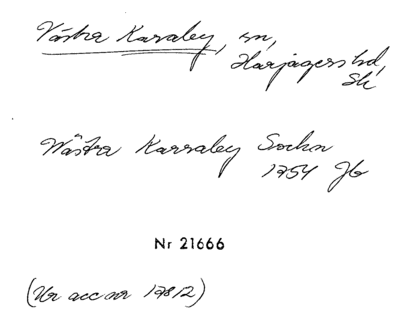 Västra Karaby, sn,
Harjagers hd,
Sk
Wästra Karraby Sochn
1754 Jb
Nr 21666
(Ur acc nr 17812)